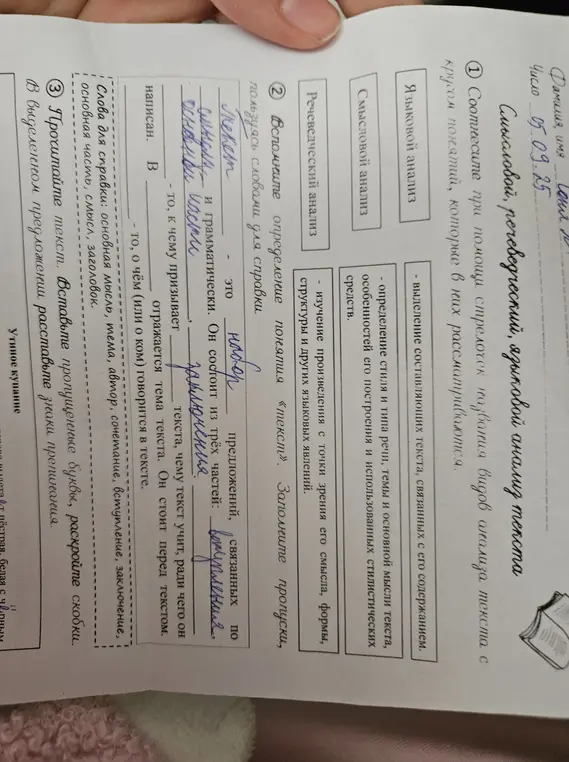 Фамилия, имя
Число 05.09.25
Смысловой, речеведческий, языковой анализ текста
1 Соотнесите при помощи стрелочек названия видов анализа текста с
кругом понятий, которые в них рассматриваются.
Языковой анализ
- выделение составляющих текста, связанных с его содержанием.
Смысловой анализ
- определение стиля и типа речи, темы и основной мысли текста,
особенностей его построения и использованных стилистических
средств.
Речеведческий анализ
- изучение произведения с точки зрения его смысла, формы,
структуры и других языковых явлений.
2 Вспомните определение понятия «текст». Заполните пропуски,
пользуясь словами для справки.
текст - это набор предложений, связанных по
и грамматически. Он состоит из трёх частей: вступления,
основной части, заключения.
то, к чему призывает текста, чему текст учит, ради чего он
написан. В отражается тема текста. Он стоит перед текстом.
то, о чём (или о ком) говорится в тексте.
Слова для справки: основная мысль, тема, автор, сочетание, вступление, заключение,
основная часть, смысл, заголовок.
3 Прочитайте текст. Вставьте пропущенные буквы, раскройте скобки.
В выделенном предложении расставьте знаки препинания.
Утиное купание
пёстрая, белая с чёрным